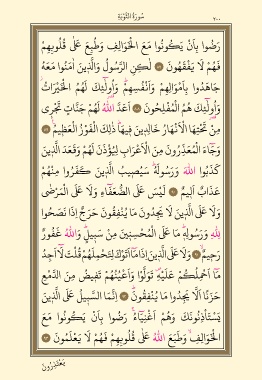 سُورَةُ التَّوْبَةِ
٢٠٠
رَضُوا بِاَنْ يَكُونُوا مَعَ الْخَوَالِفِ وَطُبِعَ عَلٰى قُلُوبِهِمْ
فَهُمْ لَا يَفْقَهُونَ ﴿٨٧﴾ لٰكِنِ الرَّسُولُ وَالَّذٖينَ اٰمَنُوا مَعَهُ
جَاهَدُوا بِاَمْوَالِهِمْ وَاَنْفُسِهِمْ وَاُولٰٓئِكَ لَهُمُ الْخَيْرَاتُ
وَاُولٰٓئِكَ هُمُ الْمُفْلِحُونَ ﴿٨٨﴾ اَعَدَّ اللّٰهُ لَهُمْ جَنَّاتٍ تَجْرٖى
مِنْ تَحْتِهَا الْاَنْهَارُ خَالِدٖينَ فٖيهَا ذٰلِكَ الْفَوْزُ الْعَظٖيمُ ﴿٨٩﴾
وَجَٓاءَ الْمُعَذِّرُونَ مِنَ الْاَعْرَابِ لِيُؤْذَنَ لَهُمْ وَقَعَدَ الَّذٖينَ
كَذَبُوا اللّٰهَ وَرَسُولَهُ سَيُصٖيبُ الَّذٖينَ كَفَرُوا مِنْهُمْ
عَذَابٌ اَلٖيمٌ ﴿٩٠﴾ لَيْسَ عَلَى الضُّعَفَٓاءِ وَلَا عَلَى الْمَرْضٰى
وَلَا عَلَى الَّذٖينَ لَا يَجِدُونَ مَا يُنْفِقُونَ حَرَجٌ اِذَا نَصَحُوا
لِلّٰهِ وَرَسُولِهٖ مَا عَلَى الْمُحْسِنٖينَ مِنْ سَبٖيلٍ وَاللّٰهُ غَفُورٌ
رَحٖيمٌ ﴿٩١﴾ وَلَا عَلَى الَّذٖينَ اِذَا مَٓا اَتَوْكَ لِتَحْمِلَهُمْ قُلْتَ لَٓا اَجِدُ
مَٓا اَحْمِلُكُمْ عَلَيْهِ تَوَلَّوْا وَاَعْيُنُهُمْ تَفٖيضُ مِنَ الدَّمْعِ
حَزَنًا اَلَّا يَجِدُوا مَا يُنْفِقُونَ ﴿٩٢﴾ اِنَّمَا السَّبٖيلُ عَلَى الَّذٖينَ
يَسْتَاْذِنُونَكَ وَهُمْ اَغْنِيَٓاءُ رَضُوا بِاَنْ يَكُونُوا مَعَ
الْخَوَالِفِ وَطَبَعَ اللّٰهُ عَلٰى قُلُوبِهِمْ فَهُمْ لَا يَعْلَمُونَ ﴿٩٣﴾
يَعْتَذِرُونَ